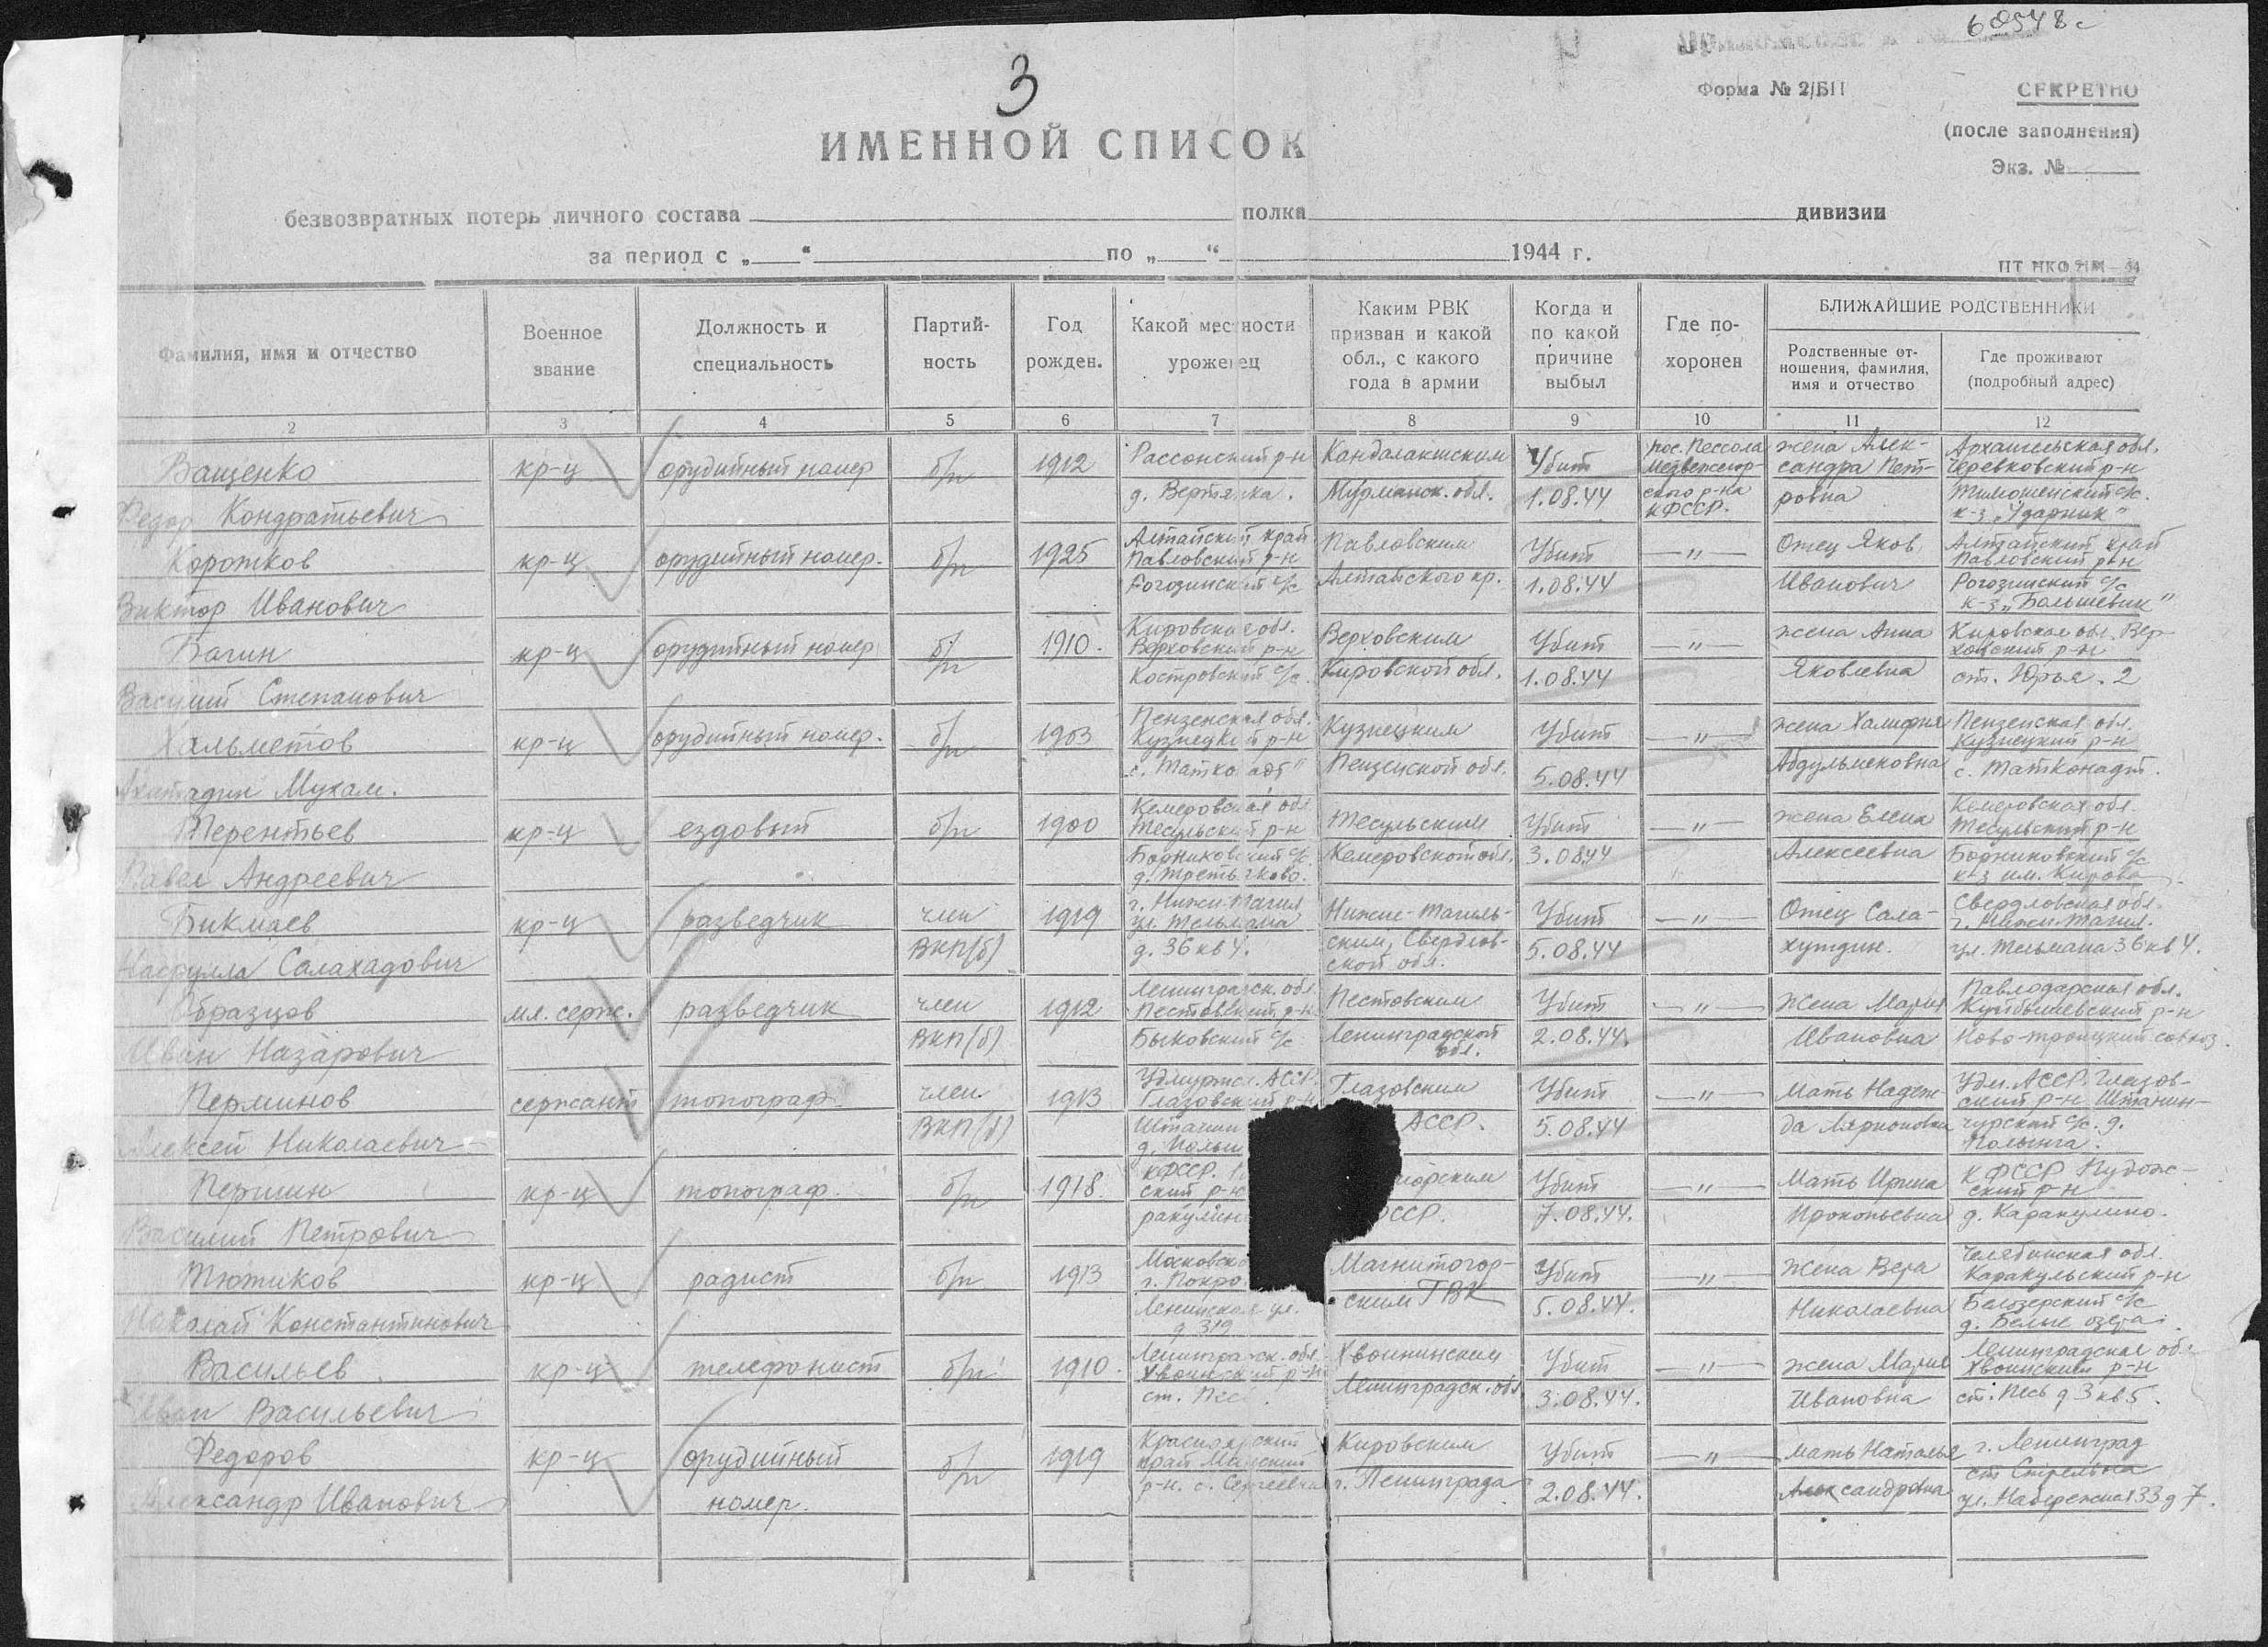 60548с
3
Форма № 2/БП
СЕКРЕТНО
(после заполнения)
Экз. №
ИМЕННОЙ СПИСОК
безвозвратных потерь личного состава полка дивизии
за период с „ “ по „ “ 1944 г.
Фамилия, имя и отчество
Военное звание
Должность и специальность
Партий- ность
Год рожден.
Какой местности уроженец
Каким РВК призван и какой обл., с какого года в армии
Когда и по какой причине выбыл
Где по- хоронен
БЛИЖАЙШИЕ РОДСТВЕННИКИ
Родственные от- ношения, фамилия, имя и отчество
Где проживают (подробный адрес)
2 3 4 5 6 7 8 9 10 11 12
Ващенко кр-ц орудийный номер б/п 1912 Рассонский р-н Кандалакшским Убит пос. Пессола жена Алек- Архангельская обл.
Медвежегор- сандра Пет- Черевковский р-н
Федор Кондратьевич д. Вертянка. Мурманск. обл. 1.08.44 ского р-на ровна Тимошенский с/с.
КФССР. к-з „Ударник“
Коротков кр-ц орудийный номер. б/п 1925 Алтайский край Павловским Убит —„— Отец Яков Алтайский край
Павловский р-н Павловский р-н
Виктор Иванович Рогозинский с/с Алтайского кр. 1.08.44 Иванович Рогозинский с/с
к-з „Большевик“
Багин кр-ц орудийный номер б/п 1910. Кировская обл. Верховским Убит —„— жена Анна Кировская обл. Вер-
Верховский р-н ховский р-н
Василий Степанович Костровский с/с. Кировской обл. 1.08.44 Яковлевна ст. Юрья. 2
Хальметов кр-ц орудийный номер. б/п 1903 Пензенская обл. Кузнецким Убит —„— жена Пензенская обл.
Кузнецкий р-н Кузнецкий р-н
Мухам. с. Пензенской обл. 5.08.44 с. Татканадт.
Терентьев кр-ц ездовый б/п 1900 Кемеровская обл. Тисульским Убит —„— жена Елена Кемеровская обл.
Тисульский р-н Тисульский р-н
Павел Андреевич с/с. Кемеровской обл. 3.08.44 Алексеевна с/с
д. Третьяково. к-з им. Кирова
Бикмаев кр-ц разведчик член 1919 г. Нижн-Тагил Нижне-Тагиль- Убит —„— Отец Сала- Свердловская обл.
ул. Тельмана г. Нижн-Тагил.
Насрулла Салахадович ВКП(б) д. 36 кв 4. ским, Свердлов- 5.08.44 хутдин. ул. Тельмана 36 кв 4.
ской обл.
Образцов мл. серж. разведчик член 1912 Ленинградск. обл. Пестовским Убит —„— Жена Мария Павлодарская обл.
Пестовский р-н Куйбышевский р-н
Иван Назарович ВКП(б) Быковский с/с Ленинградской обл. 2.08.44. Ивановна Ново-троицкий совхоз.
Перминов сержант топограф. член. 1913 Удмуртск. АССР. Глазовским Убит —„— Мать Надеж- Удм. АССР. Глазов-
Глазовский р-н ский р-н Штанин-
Алексей Николаевич ВКП(б) АССР. 5.08.44 да Ларионовна с/с. д.
Першин кр-ц топограф. б/п 1918. КФССР. Убит —„— Мать Ирина КФССР Пудож-
ский р-н горским ский р-н
Василий Петрович ракулин ССР. 7.08.44. Прокопьевна д. Каракулино.
Тютиков кр-ц радист б/п 1913 Московско Магнитогор- Убит —„— Жена Вера Челябинская обл.
г. Покро Каракульский р-н
Николай Константинович Ленинская ул. ским ГВК 5.08.44. Николаевна Белозерский с/с
д 319 д. Белые озера.
Васильев кр-ц телефонист б/п 1910. Ленинградск. обл. Хвойнинским Убит —„— жена Мария Ленинградская об.
Хвойнский р-н Хвойнский р-н
Иван Васильевич ст. Пес Ленинградск. обл 3.08.44. Ивановна ст. Песь д 3 кв 5.
Федоров кр-ц орудийный б/п 1919 Красноярский Кировским Убит —„— мать Наталья г. Ленинград
край Манский ст Стрельна
Александр Иванович номер. р-н. с. Сергеевка г. Ленинграда 2.08.44. Александровна ул. Набережная 33 д 7.